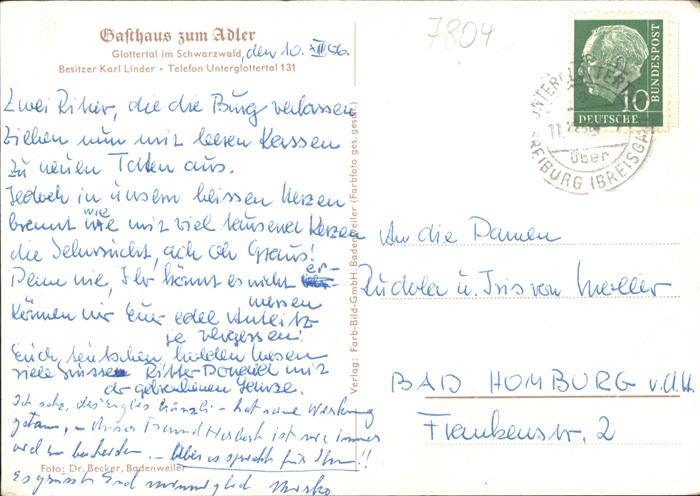 Gasthaus zum Adler
Glottertal im Schwarzwald, den 10. XII 66.
Besitzer Karl Linder • Telefon Unterglottertal 131
7804
Zwei Ritter, die die Burg verlassen
ziehen nun mit leeren Kassen
zu neuen Taten aus.
Jedoch in unsern heissen Herzen
brennt wie mit viel tausend Kerzen
die Sehnsucht, ach oh Graus!
Peine nie, Ihr könnt es nicht er-
messen
können wir Euer edel Antlitz
je vergessen!
Euch, holden Wesen
viele Grüsse Ritter Donald mit
der Gense.
Ich sehe, des Kanzli - hat seine Wirkung
getan, - Unser Freund Herbert ist wie immer
viel zu bescheiden. - Aber es spricht für Ihn!!
Es grüsst Euch Mirko
Foto: Dr. Becker, Badenweiler
Verlag: Farb-Bild-GmbH. Badenweiler (Farbfoto ges. gesch.)
10
DEUTSCHE
BUNDESPOST
über
FREIBURG (BREISGAU)
An die Damen
u. Iris von Moller
BAD HOMBURG v.d.H
Frankenstr. 2